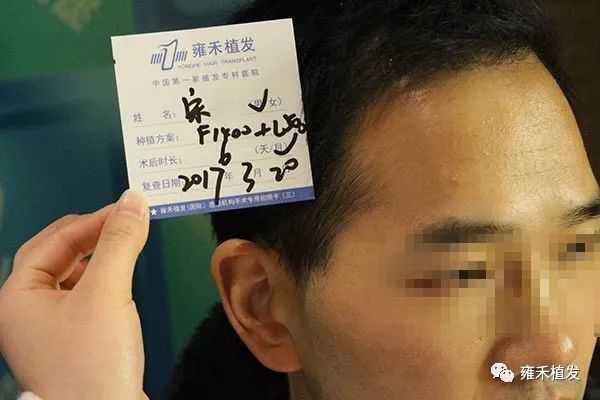 雍禾植发
YONGHE HAIR TRANSPLANT
中国第一家植发专科医院
姓 名: 宋 (男/女)
种植方案: F1400+
术后时长: 6 (天/月)
复查日期: 2017 年 3 月 20
★ 雍禾植发(国际)连锁机构手术专用拍照卡(三)
雍禾植发